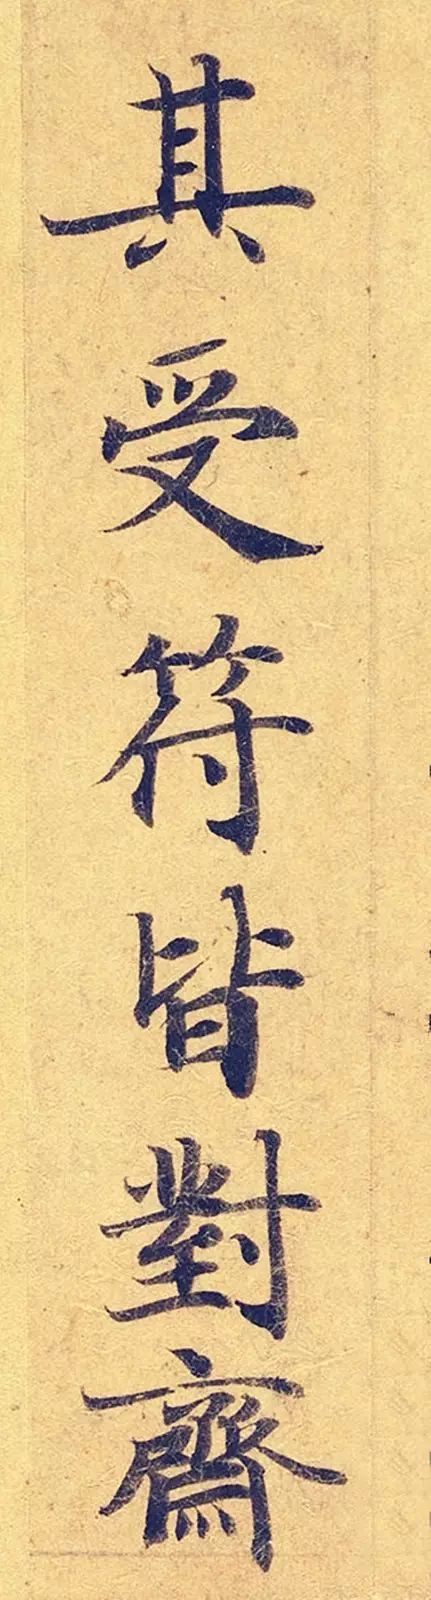 其受符皆對齋